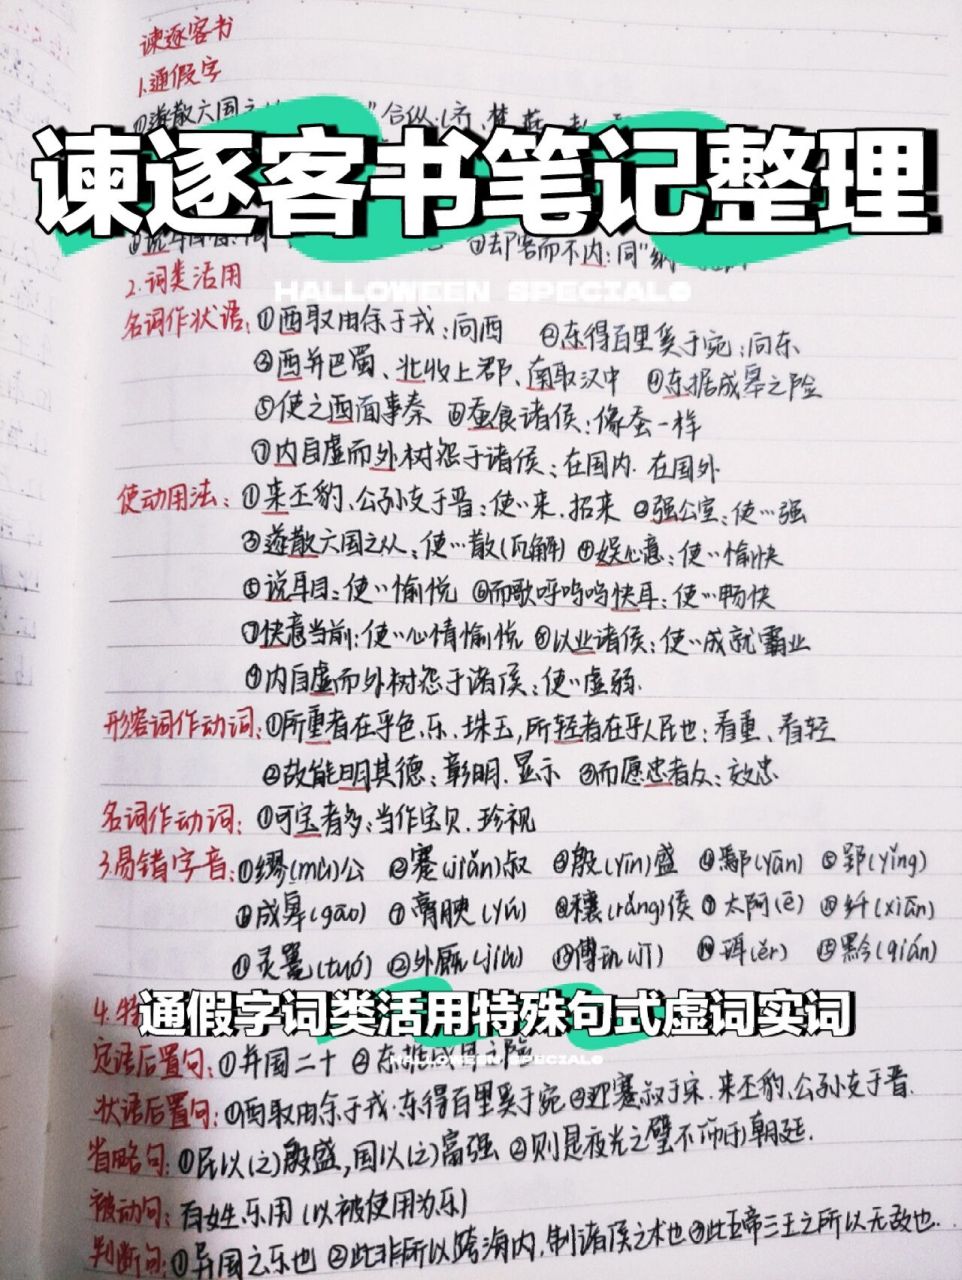 谏逐客书
1.通假字
①遂散六国之 合纵:(齐、楚、燕、赵、
谏逐客书笔记整理
⑦却客而不内:同"纳"
HALLOWEEN SPECIAL
2.词类活用
名词作状语:①西取由余于戎:向西 ②东得百里奚于宛:向东
③西并巴蜀、北收上郡、南取汉中 ④东据成皋之险
⑤使之西面事秦 ⑥蚕食诸侯:像蚕一样
⑦内自虚而外树怨于诸侯:在国内.在国外
使动用法:①来丕豹、公孙支于晋:使…来.招来 ②强公室:使…强
③遂散六国之从:使…散(瓦解) ④娱心意:使…愉快
⑤说耳目:使…愉悦 ⑥而歌呼呜呜快耳:使…畅快
⑦快意当前:使…心情愉悦 ⑧以业诸侯:使…成就霸业
⑨内自虚而外树怨于诸侯:使…虚弱.
形容词作动词:①所重者在乎色、乐、珠玉,所轻者在乎人民也:看重、看轻
②故能明其德:彰明.显示 ③而愿忠者众:效忠
名词作动词:①可宝者多:当作宝贝.珍视
3.易错字音:①缪(mù)公 ②蹇(jiǎn)叔 ③殷(yīn)盛 ④鄢(yān) ⑤郢(yǐng)
⑥成皋(gāo) ⑦膏腴(yú) ⑧穰(ráng)侯 ⑨太阿(ē) ⑩纤(xiān)
⑪灵鼍(tuó) ⑫外厩(jiù) ⑬傅玑(jī) ⑭珥(ěr) ⑮黔(qián)
4.特
通假字词类活用特殊句式虚词实词
HALLOWEEN SPECIAL
定语后置句:①并国二十 ②东据成皋之险
状语后置句:①西取由余于戎.东得百里奚于宛②迎蹇叔于宋.来丕豹、公孙支于晋.
省略句:①民以(之)殷盛,国以(之)富强 ②则是夜光之璧不饰(于)朝廷.
被动句:百姓乐用(以被使用为乐)
判断句:①异国之乐也 ②此非所以跨海内,制诸侯之术也③此五帝三王之所以无敌也.